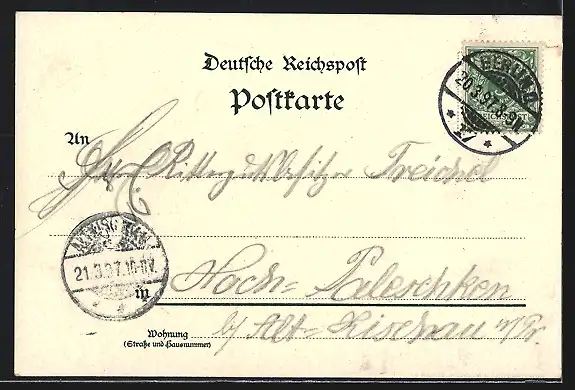 Deutsche Reichspost
Postkarte
An
Hr. Rittergutsbesitzer Treichel
in Hoch-Paleschken
Wohnung
(Straße und Hausnummer)
bei Alt-Kischau W/Pr.
20.3.97.
21.3.97.10-11V.